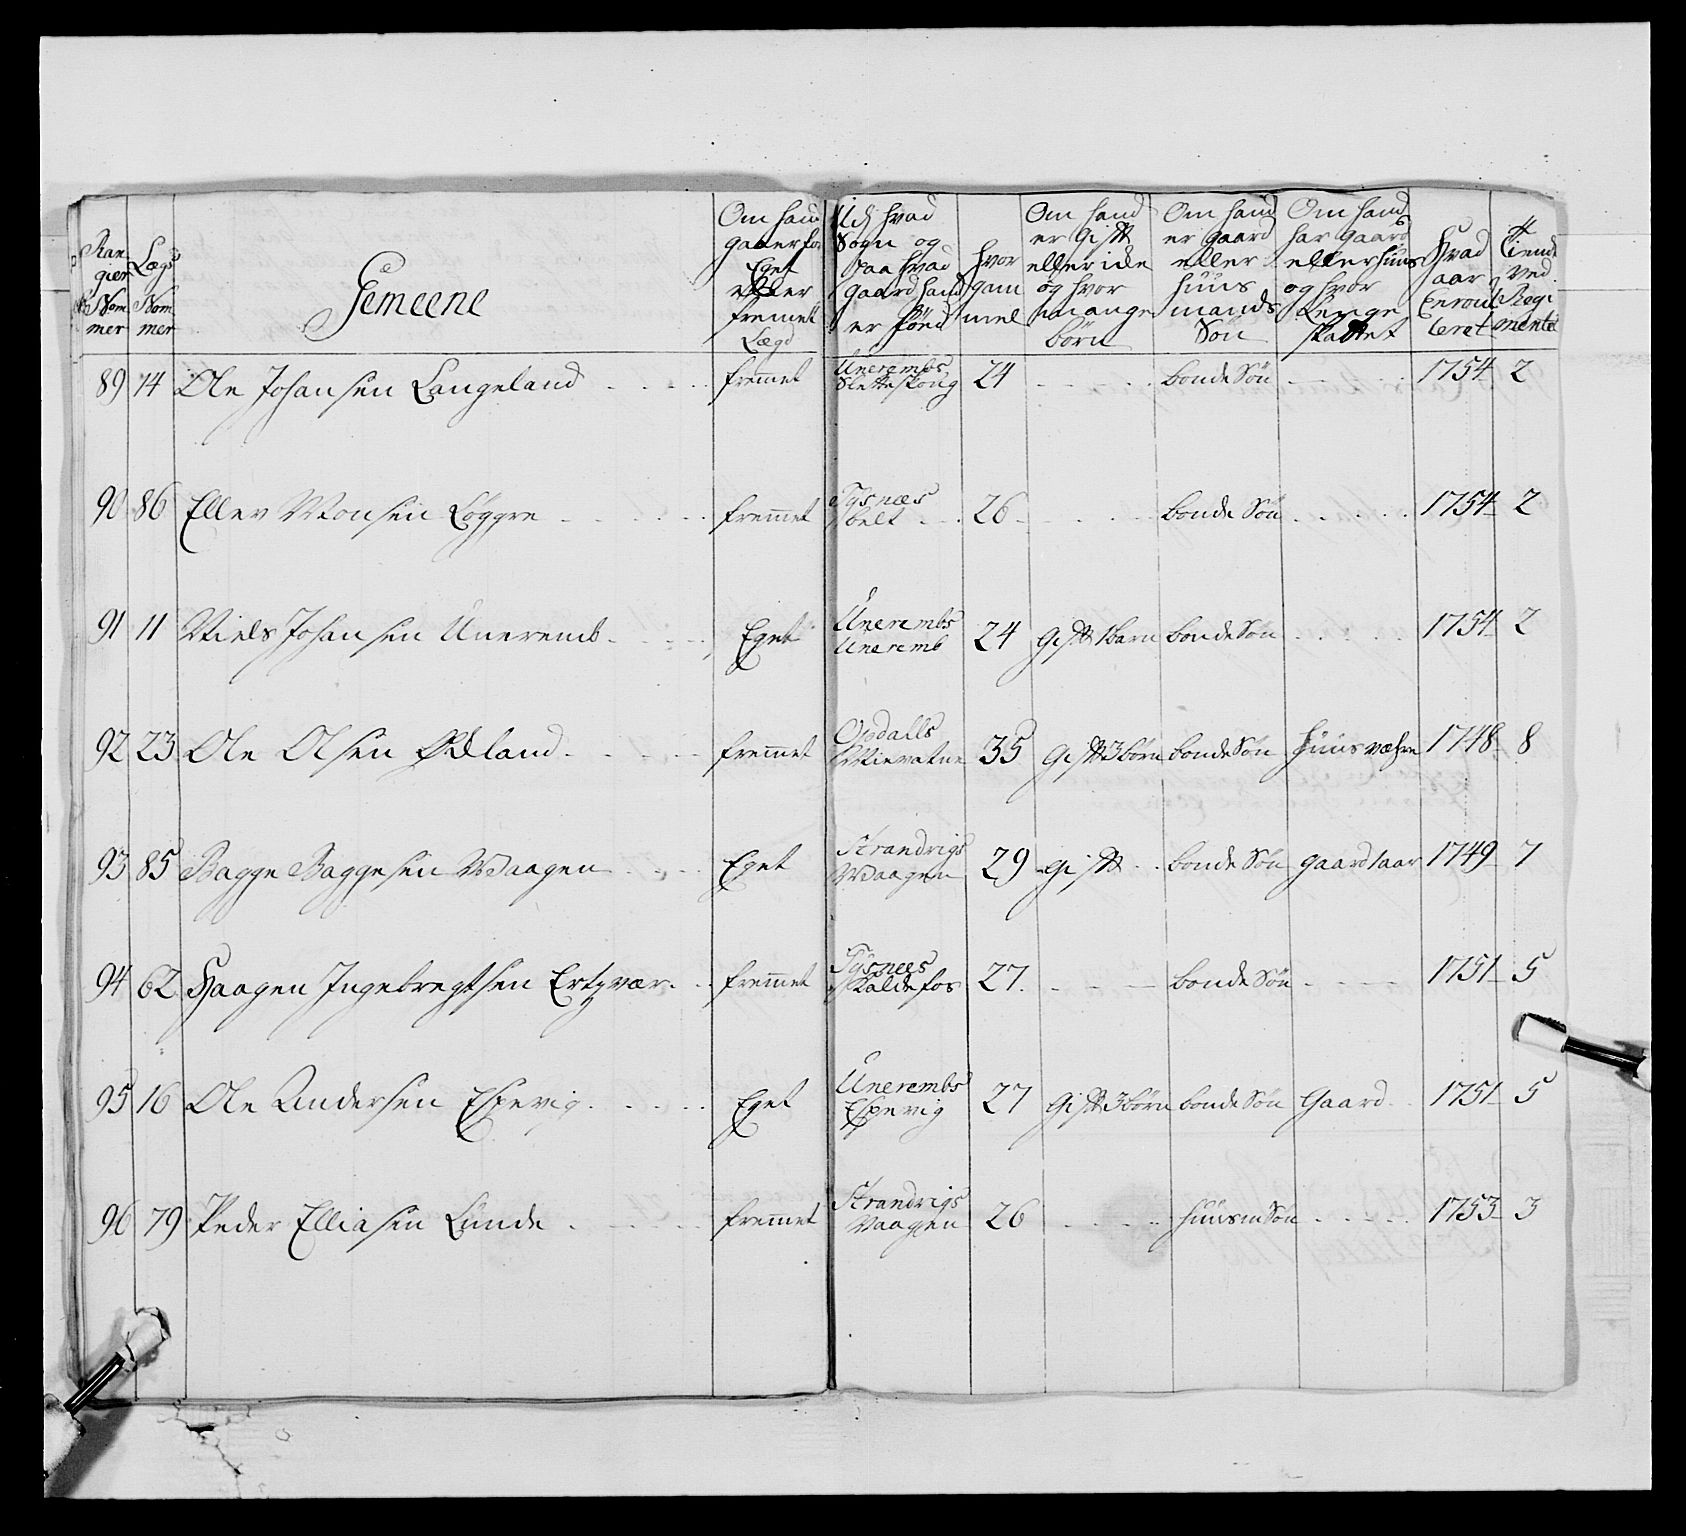 Ran
gier
Nom
mer
Lægs
Nom
mer
Gemeene
Om hand
gaaer for
Eget
eller
fremet
Lægd
Udj hvad
Sogn og
paa hvad
gaard hand
er föed
hvor
gam
mel
Om hand
er gift
eller ide
og hvor
mange
börn
Om hand
er gaard
eller
huus
mands
Sön
Om hand
har gaard
eller huus
og hvor
lenge
skattet
Hvad
aar
Enroul
leret
Tient
ved
Regi
mentet
89 74 Ole Johansen Langeland fremet Unerembs Slettescoug 24 bonde Sön 1754 2
90 86 Ellev Monsen Löggre fremet Tysnæs belt 26 bonde Sön 1754 2
91 11 Niels Johansen Uneremb Eget Unerembs Uneremb 24 gift 1 barn bonde Sön 1754 2
92 23 Ole Olsen Ødland fremet Opdalls Mievatne 35 gift 3 börn bonde Sön huusvæhre 1748 8
93 85 Bagge Baggesen Waagen Eget Strandvigs Waagen 29 gift bonde Sön gaard 1 aar 1749 7
94 62 Haagen Ingebregtsen Ertzvær fremet Tysnees Skaldefos 27 bonde Sön 1751 5
95 16 Ole Andersen Espevig Eget Unerembs Espevig 27 gift 3 börn bonde Sön Gaard 1751 5
96 79 Peder Elliasen Lunde fremet Strandvigs Vaagen 26 huusm Sön 1753 3